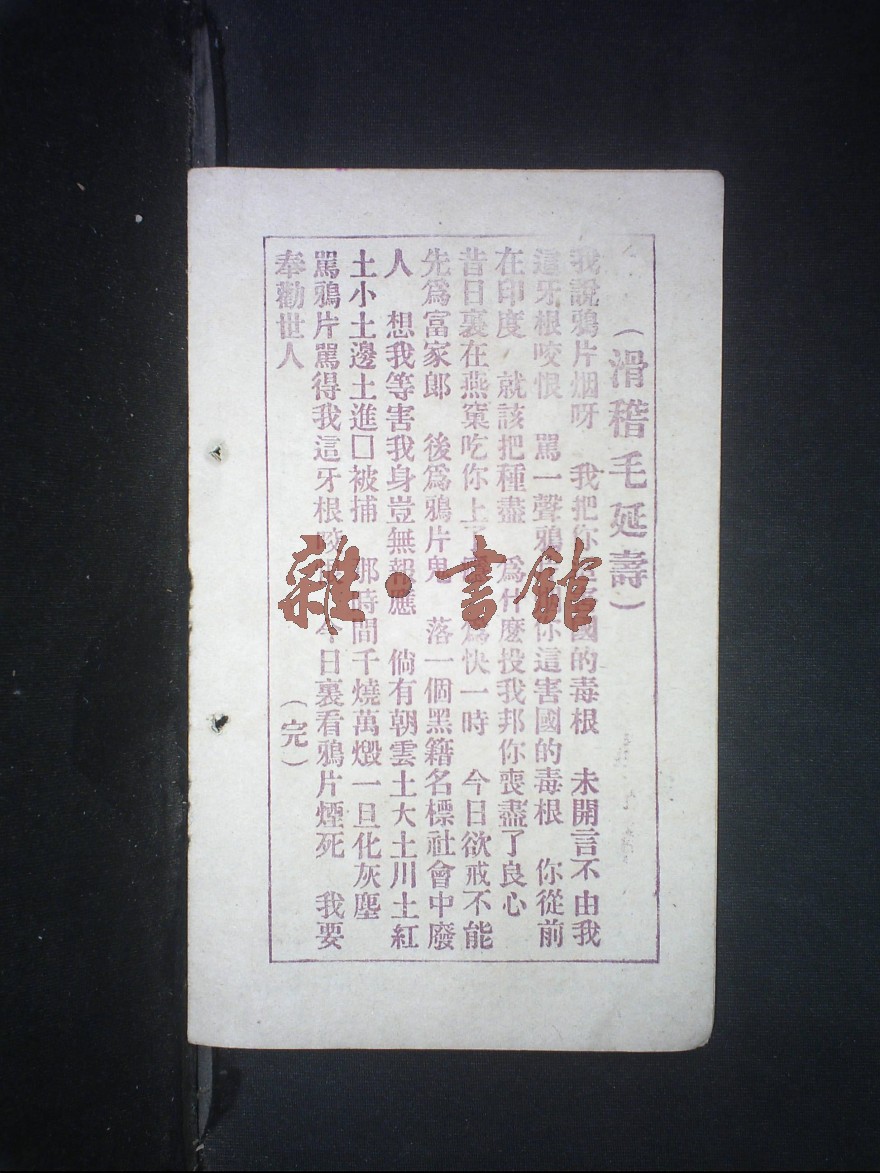 （滑稽毛延壽）
我說鴉片烟呀　我把你　國的毒根　未開言不由我
這牙根咬恨　罵一聲鴉　你這害國的毒根　你從前
在印度　就該把種盡　爲什麼投我邦你喪盡了良心
昔日裏在燕窠吃你上了　爲快一時　今日欲戒不能
先爲富家郎　後爲鴉片鬼　落一個黑籍名標社會中廢
人　想我等害我身豈無報應　倘有朝雲土大土川土紅
土小土邊土進口被捕　那時間千燒萬燬一旦化灰塵
罵鴉片罵得我這牙根咬　今日裏看鴉片煙死　我要
奉勸世人
（完）
雜·書館